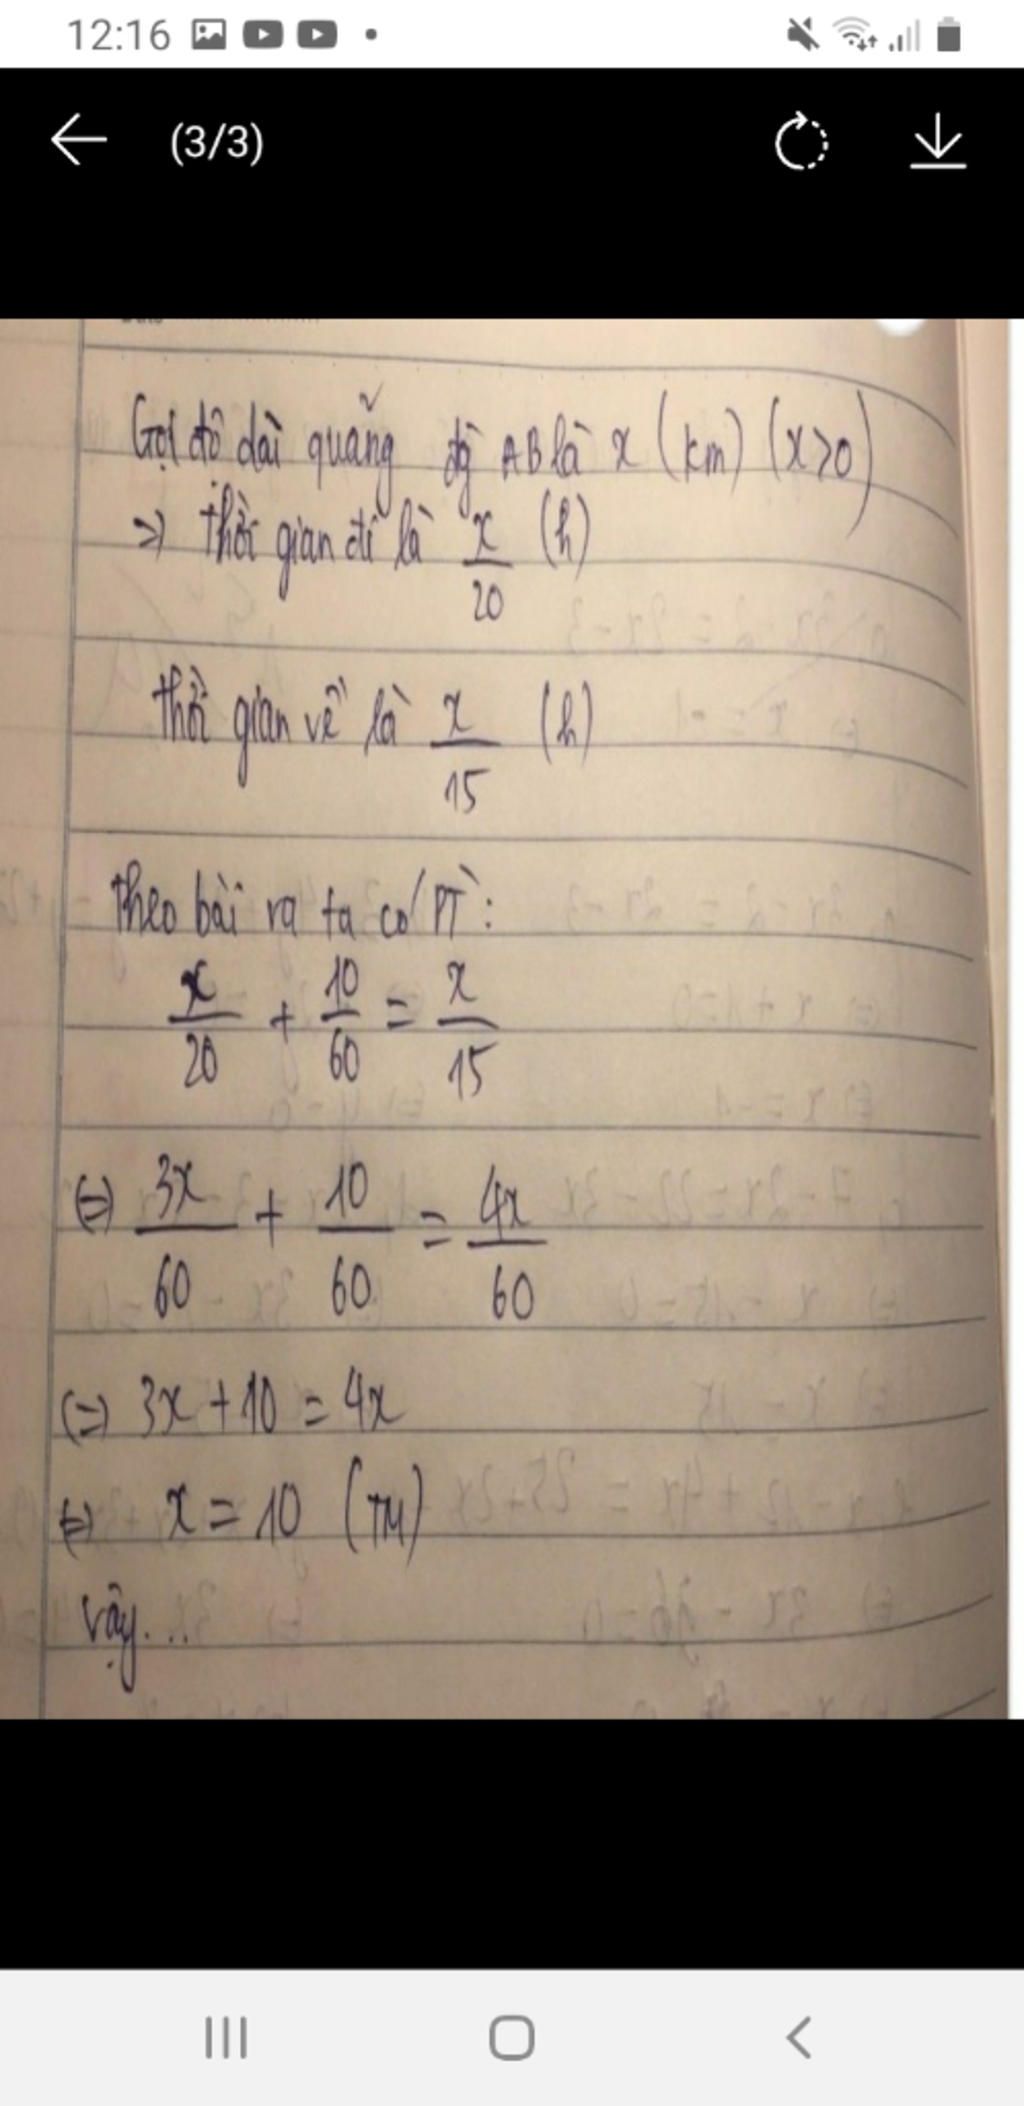 12:16
(3/3)
Gọi độ dài quãng đg AB là x (km) (x>0)
=> thời gian đi là x/20 (h)
thời gian về là x/15 (h)
theo bài ra ta có PT:
x/20 + 10/60 = x/15
(=) 3x/60 + 10/60 = 4x/60
(=) 3x + 10 = 4x
(=) x = 10 (TM)
vậy...